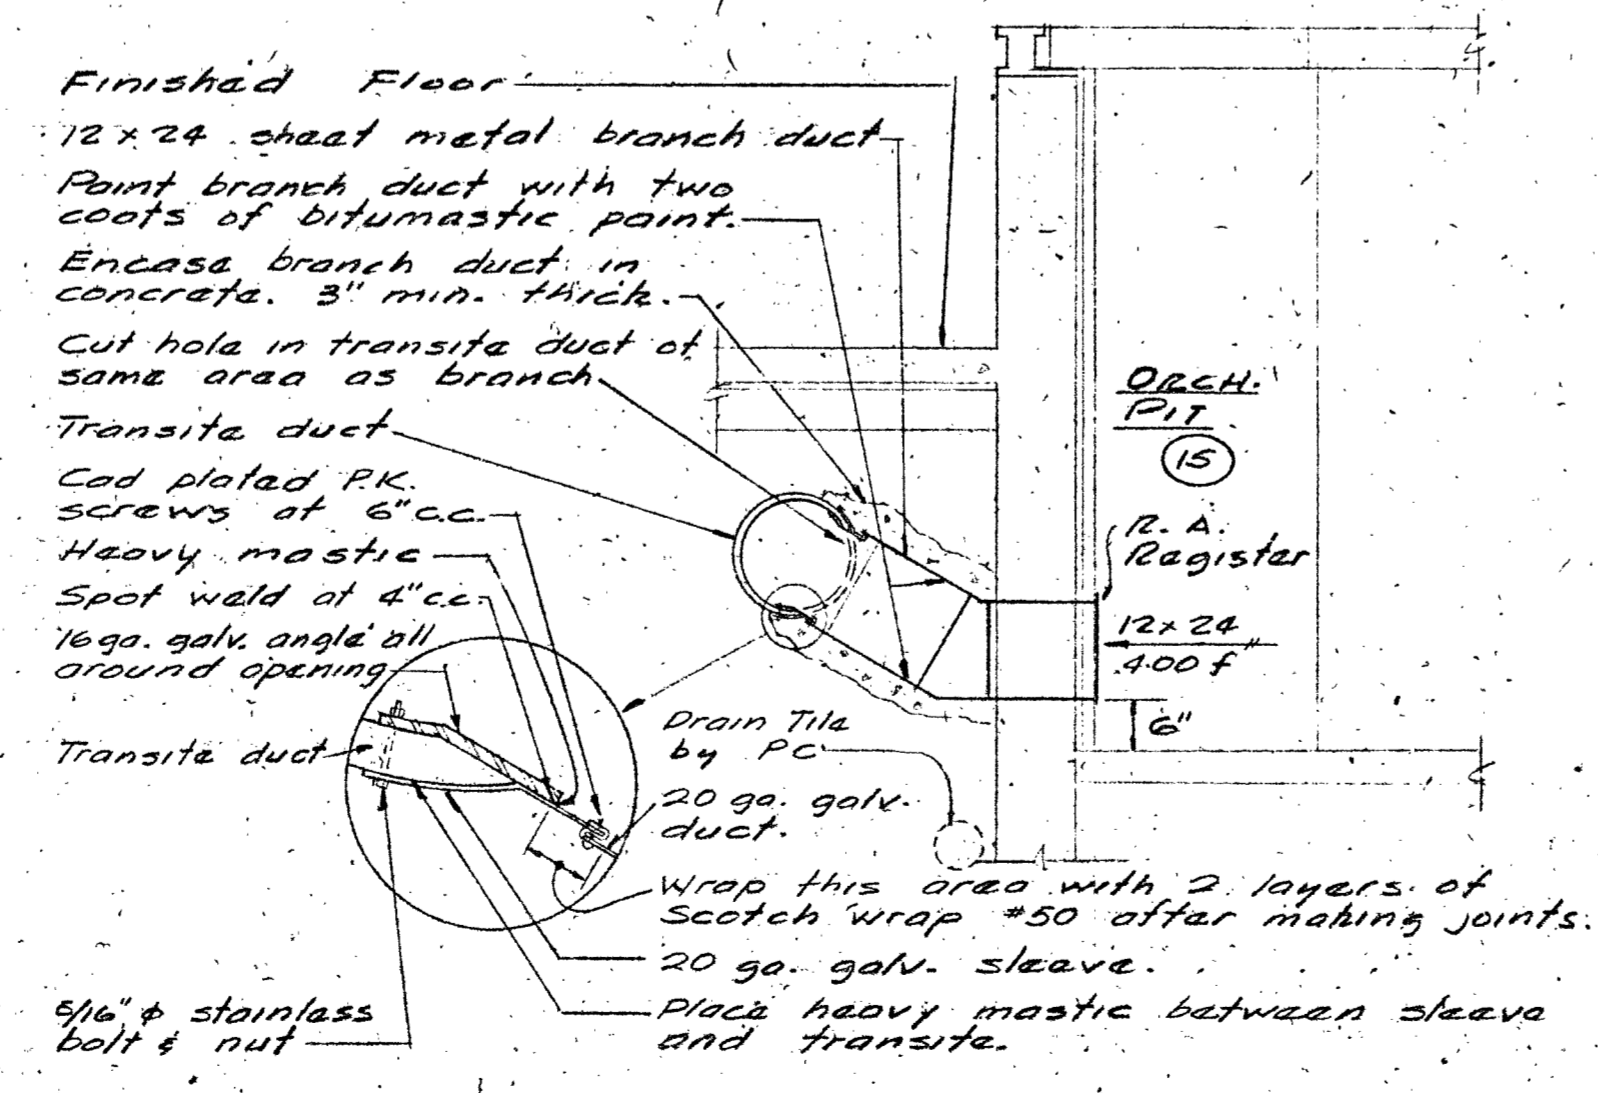 Finished Floor
12 x 24 sheet metal branch duct
Paint branch duct with two
coats of bitumastic paint.
Encase branch duct in
concrete. 3" min. thick.
Cut hole in transite duct of
same area as branch
Transite duct
Cad plated P.K.
screws at 6" c.c.
Heavy mastic
Spot weld at 4" c.c.
16 ga. galv. angle all
around opening
Transite duct
5/16" ϕ stainless
bolt & nut
ORCH.
PIT
15
R. A.
Register
12 x 24
400 f
6"
Drain Tile
by PC
20 ga. galv.
duct.
Wrap this area with 2 layers of
Scotch wrap #50 after making joints.
20 ga. galv. sleeve.
Place heavy mastic between sleeve
and transite.